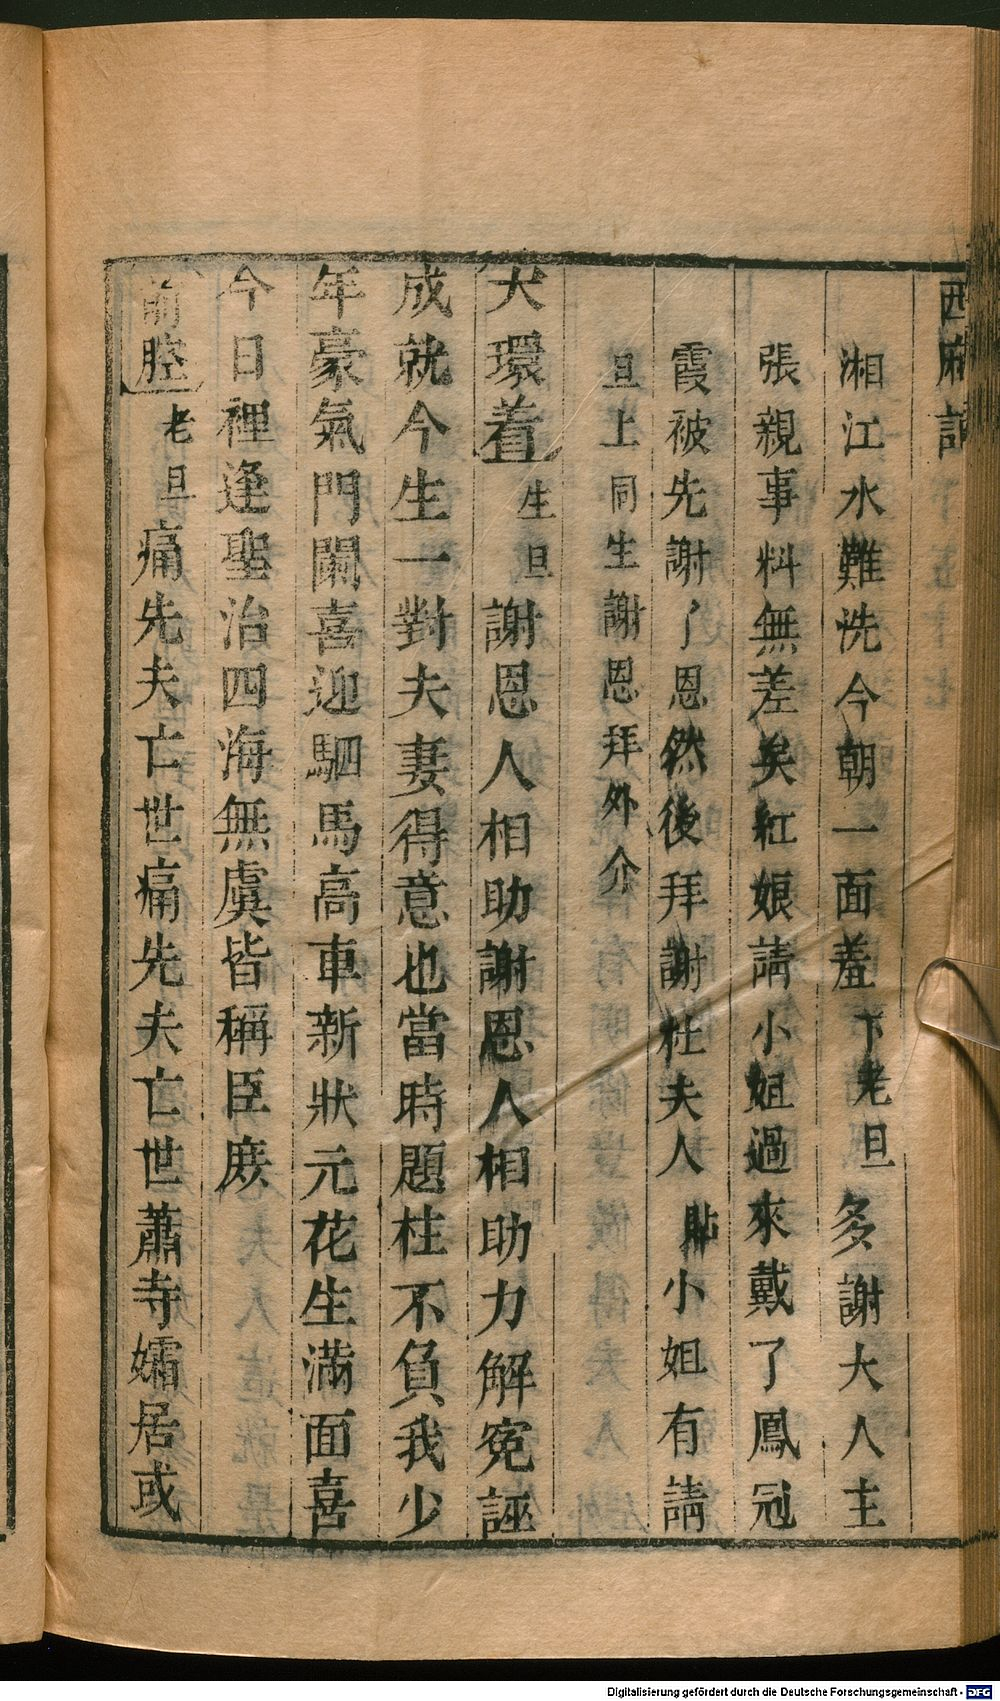 西廂記
湘江水難洗今朝一面羞下老旦多謝大人主
張親事料無差矣紅娘請小姐過來戴了鳳冠
霞被先謝了恩然後拜謝杜夫人貼小姐有請
旦上同生謝恩拜外介
犬環着生旦謝恩人相助謝恩人相助力解冤誣
成就今生一對夫妻得意也當時題柱不負我少
年豪氣門闌喜迎駟馬高車新狀元花生滿面喜
今日裡逢聖治四海無虞皆稱臣庶
前腔老旦痛先夫亡世痛先夫亡世蕭寺孀居或
Digitalisierung gefördert durch die Deutsche Forschungsgemeinschaft - DFG